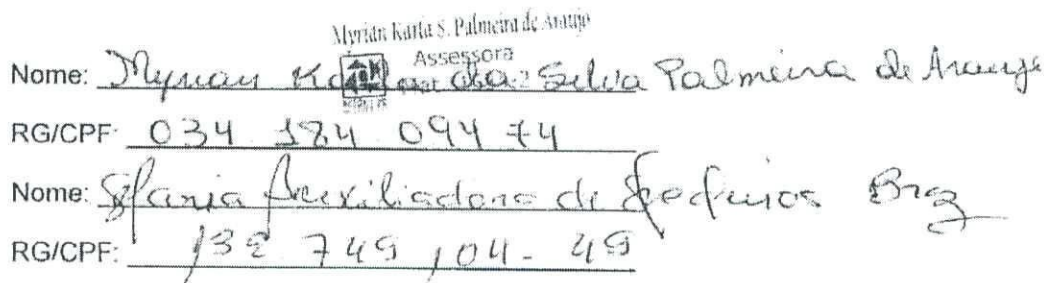 Myrian Karla S. Palmeira de Araujo
Assessora
Nome: Myrian Karla da Silva Palmeira de Araujo
RG/CPF: 034 184 094 74
Nome: Maria Auxiliadora de Braz
RG/CPF: 749 104 - 49